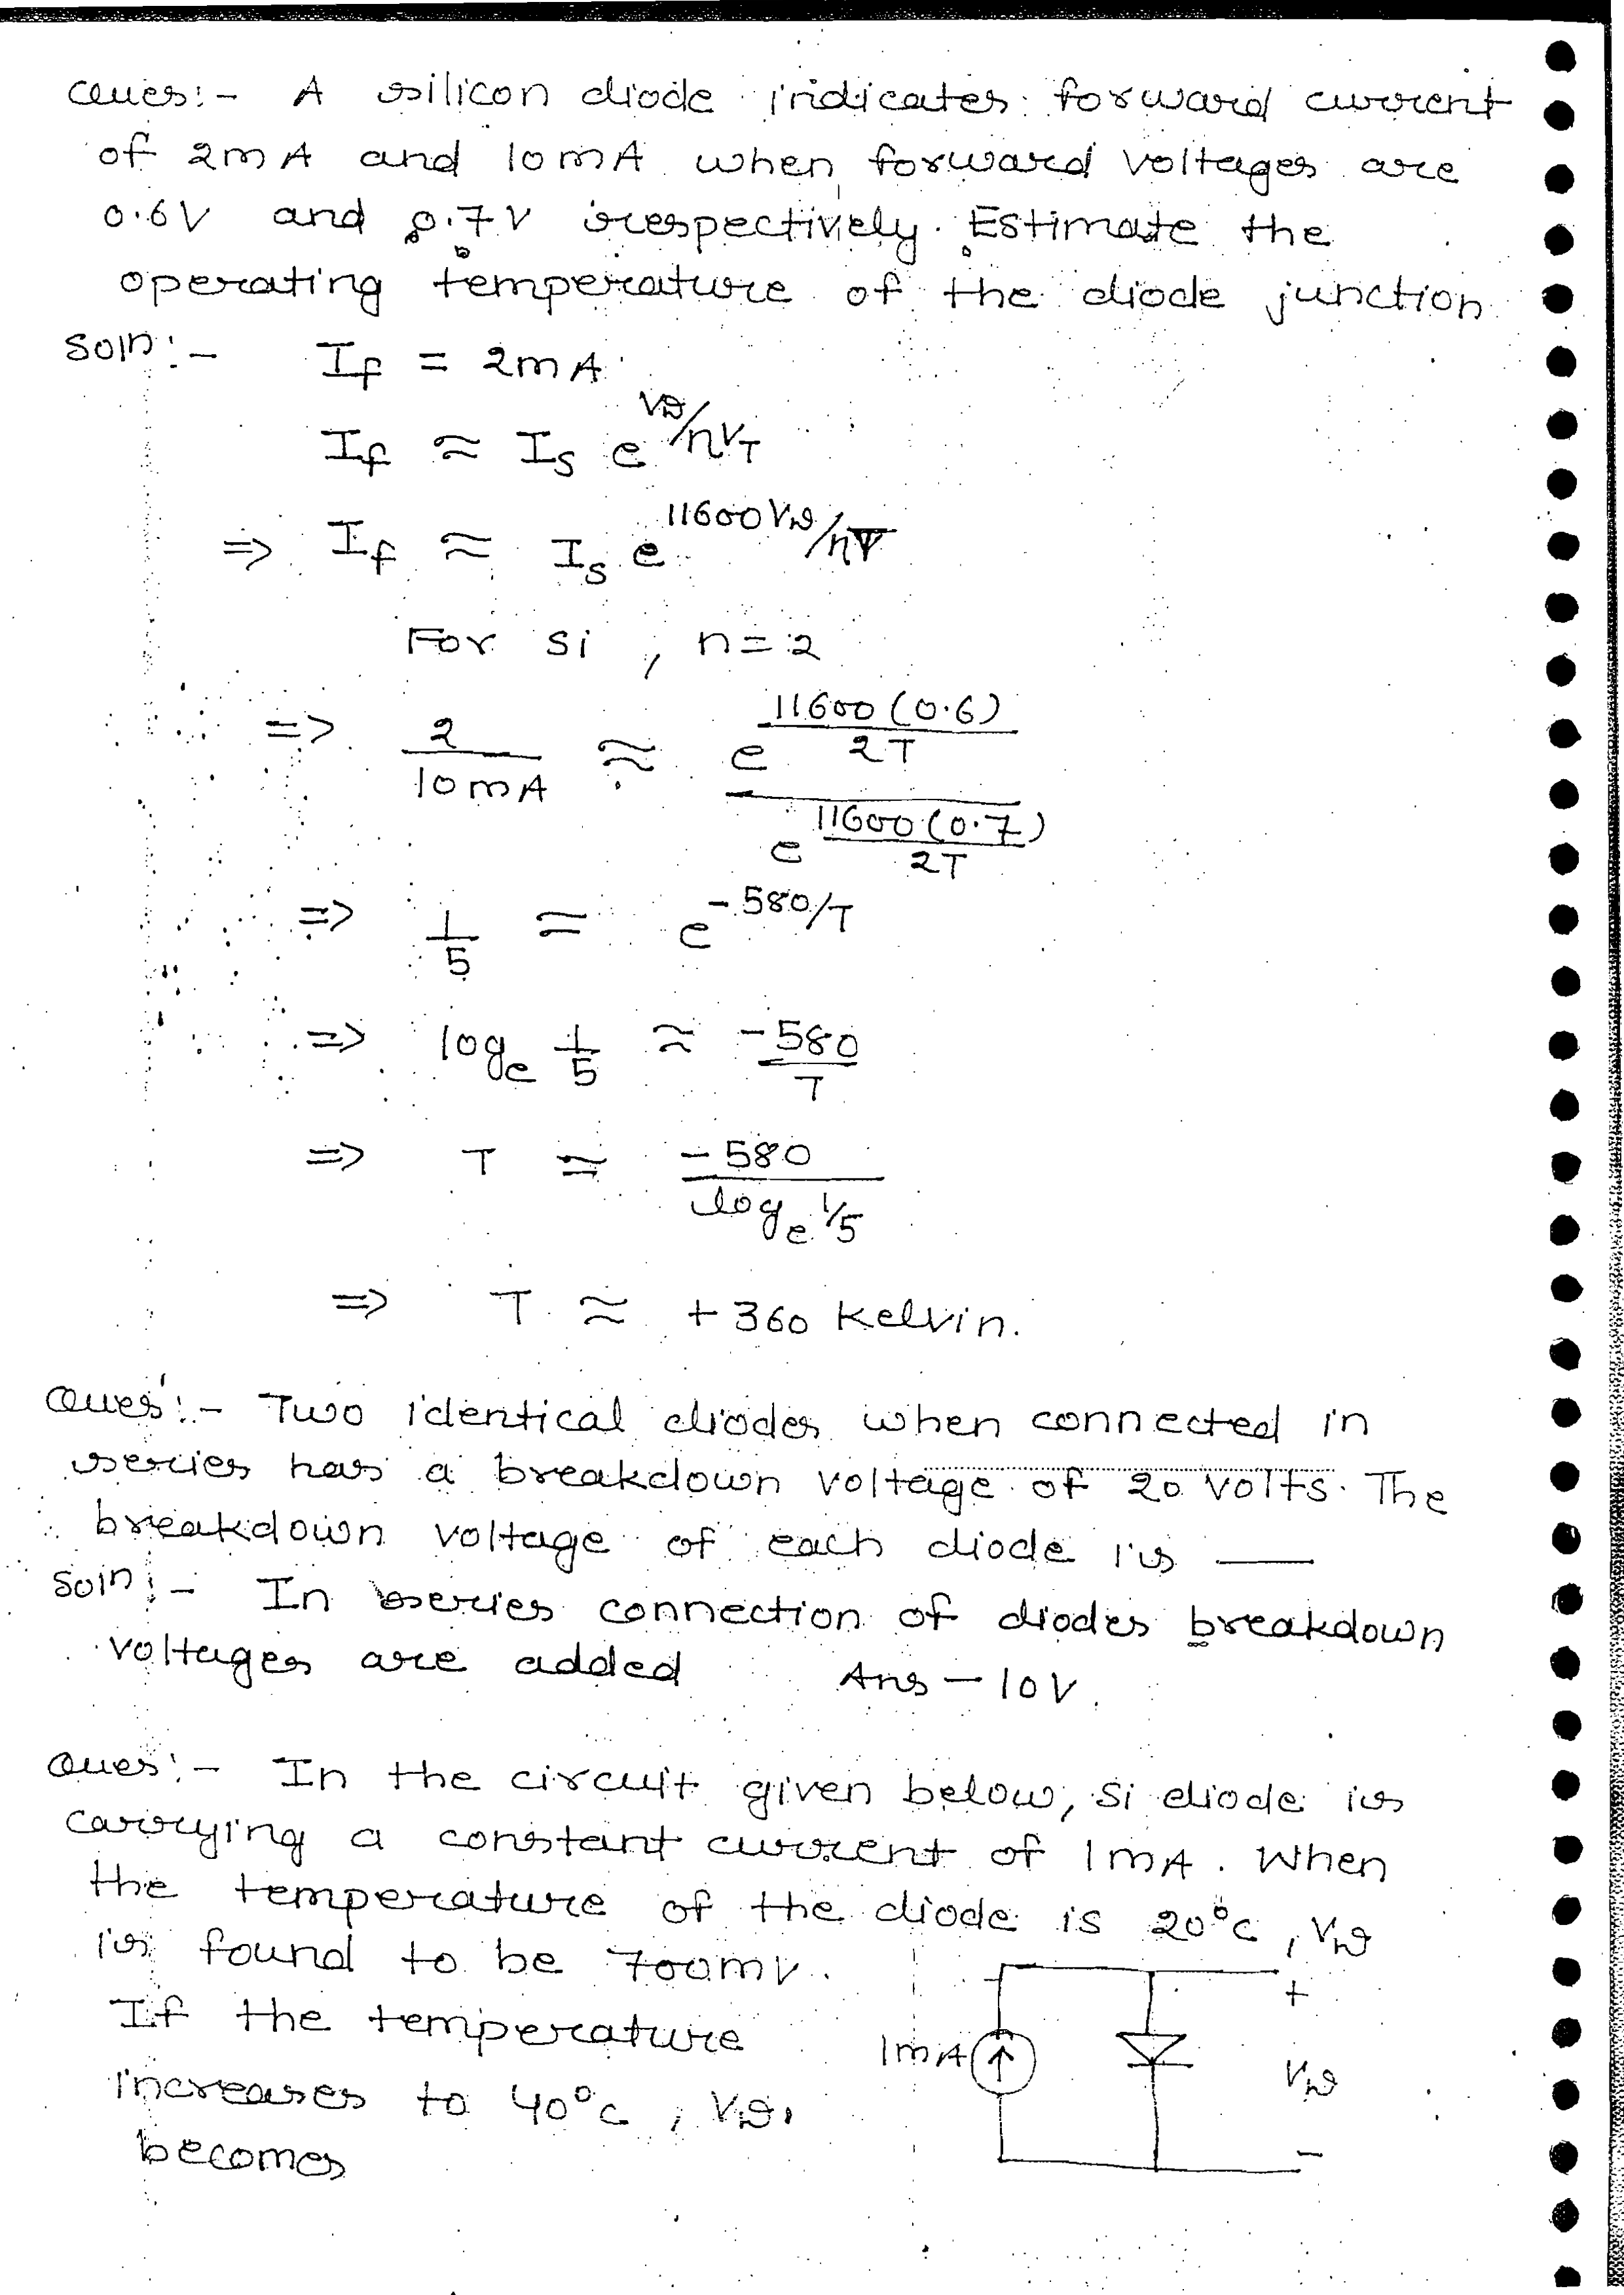 Ques:- A silicon diode indicates forward current
of 2mA and 10mA when forward voltages are
0.6V and 0.7V respectively. Estimate the
operating temperature of the diode junction
Soln:- If = 2mA
If ≈ Is e^VD/nVT
=> If ≈ Is e^11600VD/nT
For Si, n=2
=> 2/10mA ≈ e^11600(0.6)/2T / e^11600(0.7)/2T
=> 1/5 ≃ e^-580/T
=> loge 1/5 ≈ -580/T
=> T ≃ -580/loge 1/5
=> T ≈ +360 Kelvin.
Ques:- Two identical diodes when connected in
series has a breakdown voltage of 20 volts. The
breakdown voltage of each diode is ——
Soln:- In series connection of diodes breakdown
voltages are added Ans - 10V.
Ques:- In the circuit given below, Si diode is
carrying a constant current of 1mA. When
the temperature of the diode is 20°C, VD
is found to be 700mV.
If the temperature
increases to 40°C, VD
becomes
+
1mA
VD
-